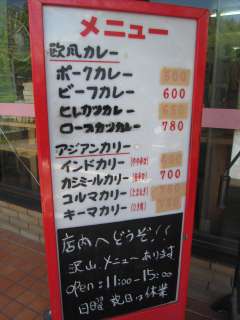 メニュー
欧風カレー
ポークカレー 500
ビーフカレー 600
ヒレカツカレー 650
ロースカツカレー 780
アジアンカリー
インドカリー
カシミールカリー 700
コルマカリー
キーマカリー
店内へどうぞ!!
沢山メニューあります
open:11:00-15:00
日曜 祝日は休業